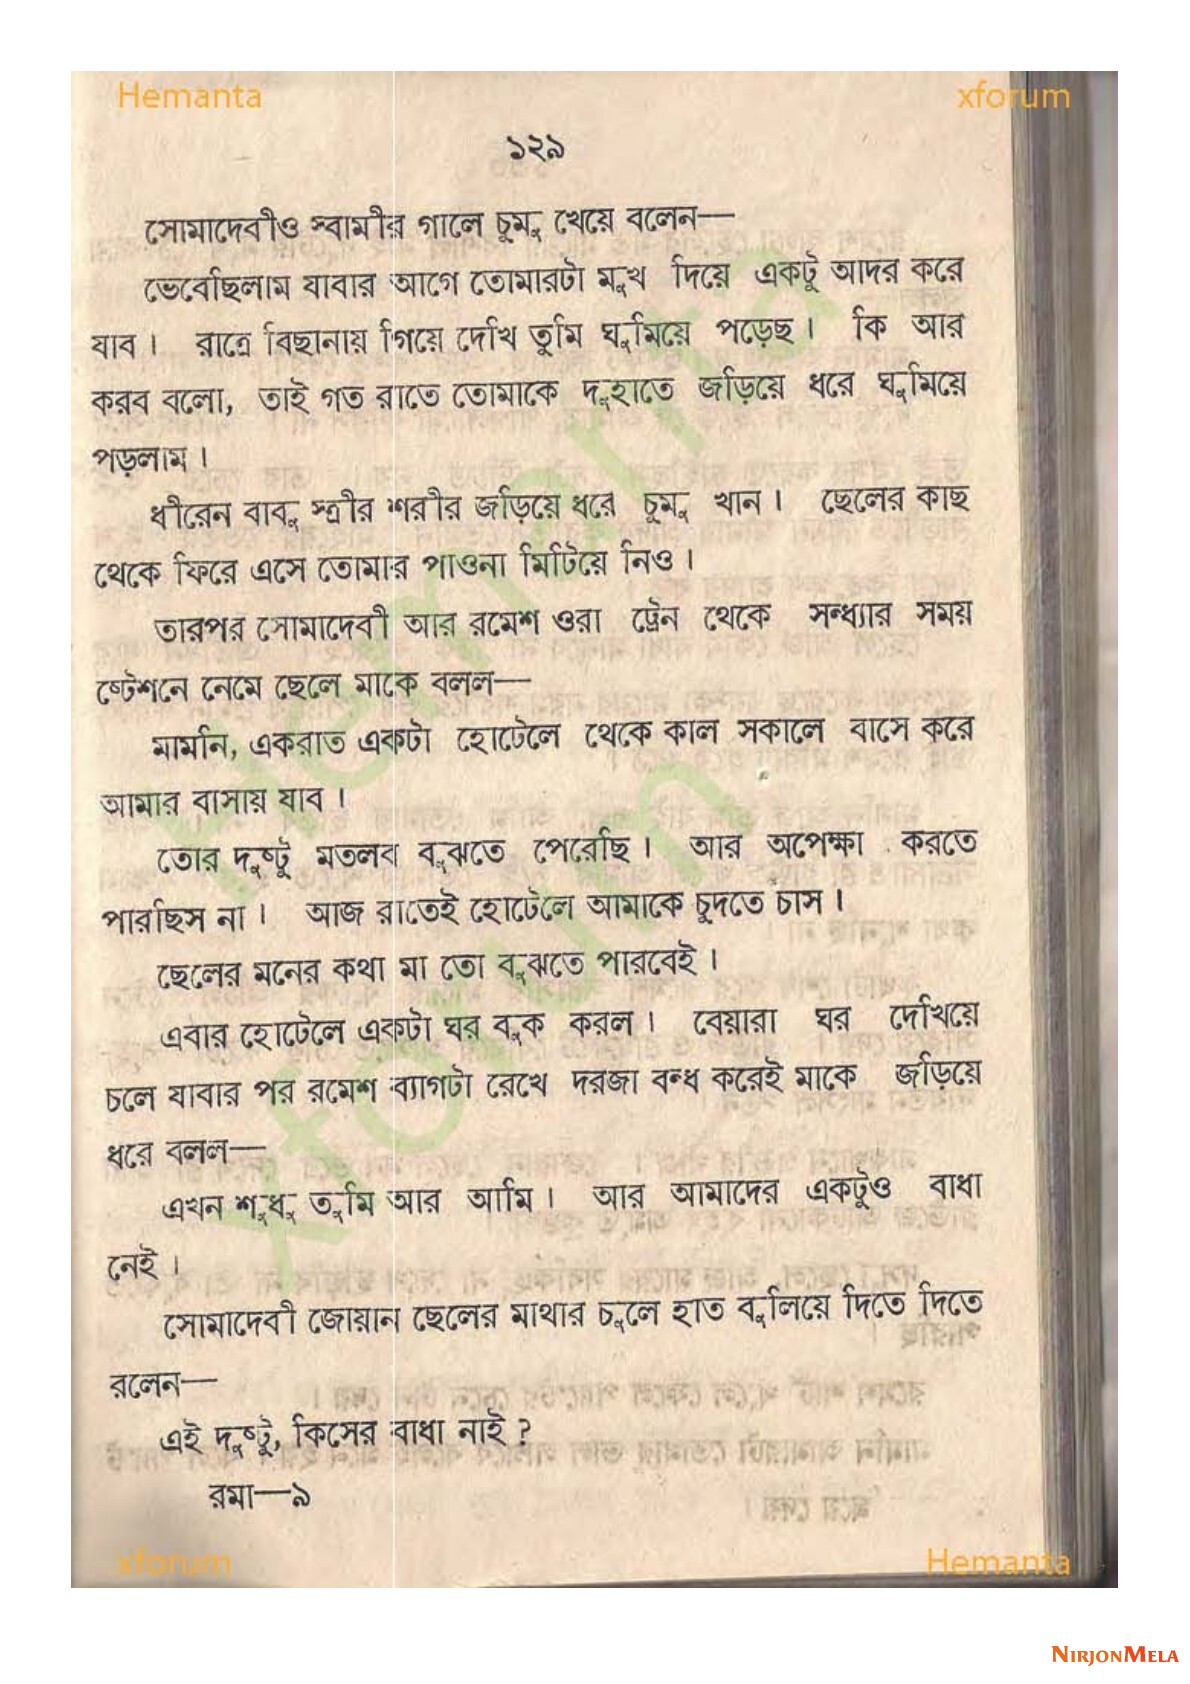 Hemanta
xforum
১২৯
সোমাদেবীও স্বামীর গালে চুমু খেয়ে বলেন—
ভেবেছিলাম যাবার আগে তোমারটা মুখ দিয়ে একটু আদর করে
যাব। রাত্রে বিছানায় গিয়ে দেখি তুমি ঘুমিয়ে পড়েছ। কি আর
করব বলো, তাই গত রাতে তোমাকে দুহাতে জড়িয়ে ধরে ঘুমিয়ে
পড়লাম।
ধীরেন বাবু স্ত্রীর শরীর জড়িয়ে ধরে চুমু খান। ছেলের কাছ
থেকে ফিরে এসে তোমার পাওনা মিটিয়ে নিও।
তারপর সোমাদেবী আর রমেশ ওরা ট্রেন থেকে সন্ধ্যার সময়
ষ্টেশনে নেমে ছেলে মাকে বলল—
মামনি, একরাত একটা হোটেলে থেকে কাল সকালে বাসে করে
আমার বাসায় যাব।
তোর দুষ্টু মতলব বুঝতে পেরেছি। আর অপেক্ষা করতে
পারছিস না। আজ রাতেই হোটেলে আমাকে চুদতে চাস।
ছেলের মনের কথা মা তো বুঝতে পারবেই।
এবার হোটেলে একটা ঘর বুক করল। বেয়ারা ঘর দেখিয়ে
চলে যাবার পর রমেশ ব্যাগটা রেখে দরজা বন্ধ করেই মাকে জড়িয়ে
ধরে বলল—
এখন শুধু তুমি আর আমি। আর আমাদের একটুও বাধা
নেই।
সোমাদেবী জোয়ান ছেলের মাথার চুলে হাত বুলিয়ে দিতে দিতে
রলেন—
এই দুষ্টু, কিসের বাধা নাই?
রমা—৯
xforum
Hemanta
NIRJONMELA